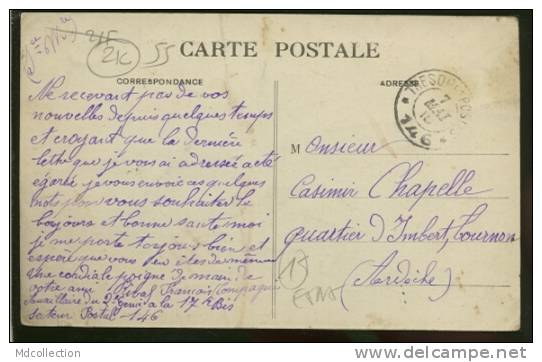 215
21C 55
CARTE POSTALE
CORRESPONDANCE
ADRESSE
Ne recevant pas de vos
nouvelles depuis quelques temps
et croyant que la dernière
lettre que je vous ai adressé a été
égaré je vous envoie ces quelques
mots pour vous souhaiter le
bonjours et bonne santé moi
je me porte toujours bien et
espère que vous en êtes de même
une cordiale poigne de main de
votre ami François Compagnie
Auxillaire du 2e Genie a la 17e Bis
secteur Postal 146
TRESOR ET POSTES
7
MAI
* 146 *
Monsieur
Casimir Chapelle
quartier d'Imbert Tournon
(Ardèche)
15